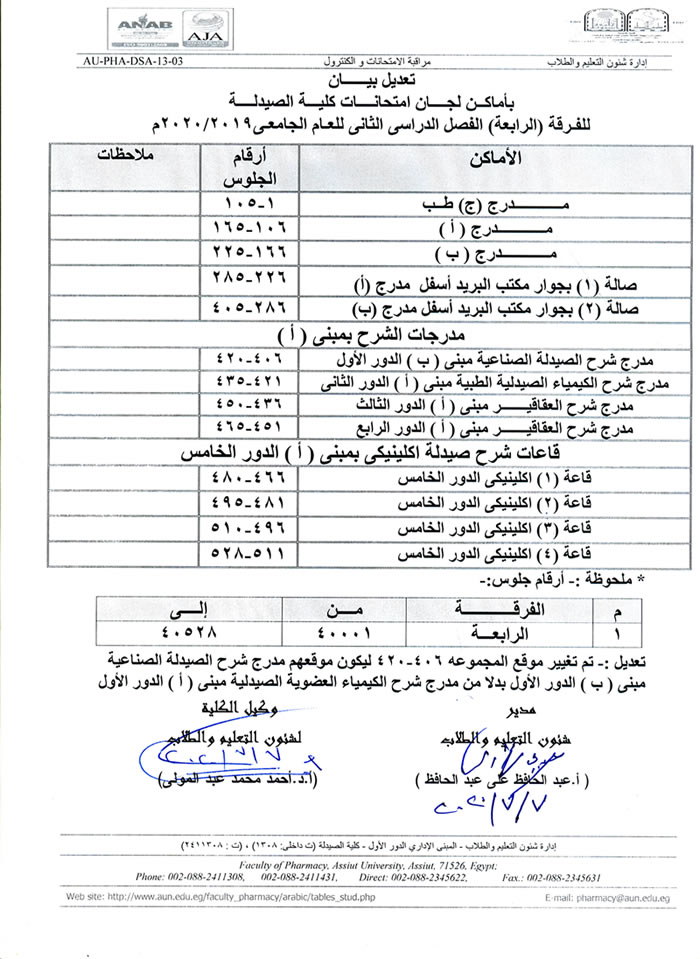 ANAB
AJA
إدارة شئون التعليم والطلاب
مراقبة الامتحانات و الكنترول
AU-PHA-DSA-13-03
تعديل بيــــان
بأماكن لجان امتحانات كلية الصيدلة
للفرقة (الرابعة) الفصل الدراسى الثانى للعام الجامعى ٢٠٢٠/٢٠١٩م
الأماكن أرقام الجلوس ملاحظات
مــــدرج (ج) طب ١-١٠٥
مــــدرج ( أ ) ١٠٦-١٦٥
مــــدرج ( ب ) ١٦٦-٢٢٥
صالة (١) بجوار مكتب البريد أسفل مدرج (أ) ٢٢٦-٢٨٥
صالة (٢) بجوار مكتب البريد أسفل مدرج (ب) ٢٨٦-٤٠٥
مدرجات الشرح بمبنى ( أ )
مدرج شرح الصيدلة الصناعية مبنى ( ب ) الدور الأول ٤٠٦-٤٢٠
مدرج شرح الكيمياء الصيدلية الطبية مبنى ( أ ) الدور الثانى ٤٢١-٤٣٥
مدرج شرح العقاقيـــر مبنى ( أ ) الدور الثالث ٤٣٦-٤٥٠
مدرج شرح العقاقيـــر مبنى ( أ ) الدور الرابع ٤٥١-٤٦٥
قاعات شرح صيدلة اكلينيكى بمبنى ( أ ) الدور الخامس
قاعة (١) اكلينيكى الدور الخامس ٤٦٦-٤٨٠
قاعة (٢) اكلينيكى الدور الخامس ٤٨١-٤٩٥
قاعة (٣) اكلينيكى الدور الخامس ٤٩٦-٥١٠
قاعة (٤) اكلينيكى الدور الخامس ٥١١-٥٢٨
* ملحوظة :- أرقام جلوس:-
م الفرقـــــة مـــن إلـــى
١ الرابعـة ٤٠٠٠١ ٤٠٥٢٨
تعديل :- تم تغيير موقع المجموعه ٤٠٦-٤٢٠ ليكون موقعهم مدرج شرح الصيدلة الصناعية
مبنى ( ب ) الدور الأول بدلا من مدرج شرح الكيمياء العضوية الصيدلية مبنى ( أ ) الدور الأول
مدير وكيل الكلية
شئون التعليم والطلاب لشئون التعليم والطلاب
٢٠٢٠/٧/٧
( أ.عبد الحافظ على عبد الحافظ ) (أ.د.أحمد محمد عبد المولى)
٢٠٢٠/٧/٧
إدارة شئون التعليم والطلاب - المبنى الإداري الدور الأول - كلية الصيدلة (ت داخلى: ١٣٠٨) ، (ت : ٢٤١١٣٠٨)
Faculty of Pharmacy, Assiut University, Assiut, 71526, Egypt;
Phone: 002-088-2411308, 002-088-2411431, Direct: 002-088-2345622, Fax.: 002-088-2345631
Web site: http://www.aun.edu.eg/faculty_pharmacy/arabic/tables_stud.php E-mail: pharmacy@aun.edu.eg